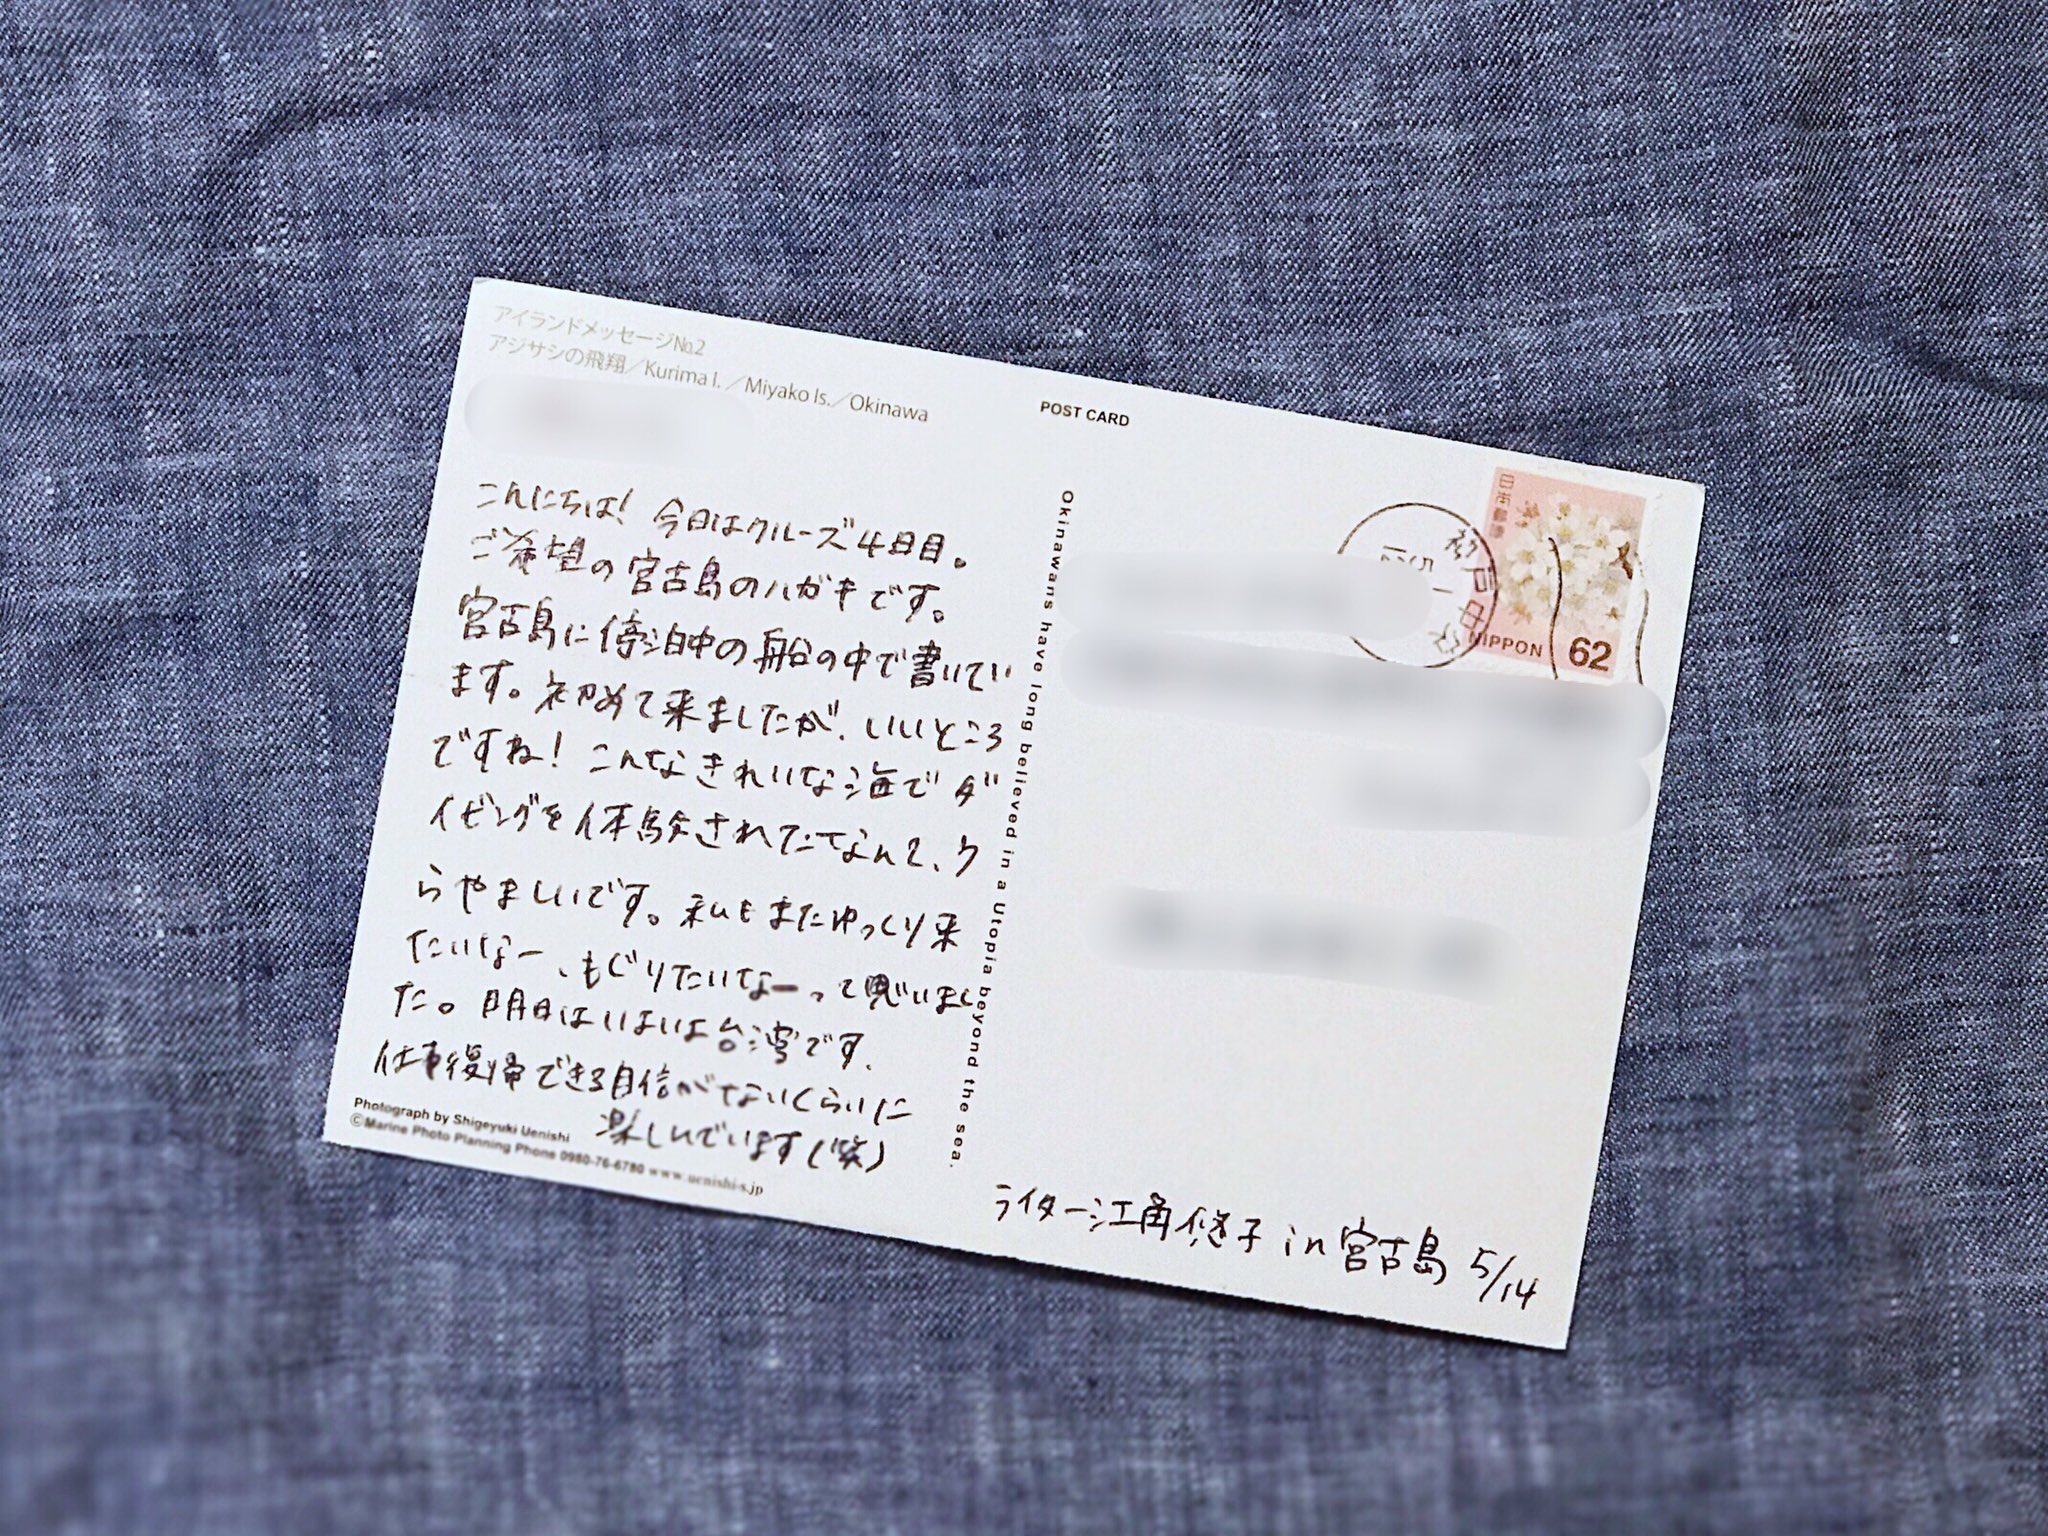 アイランドメッセージ№2
アジサシの飛翔／Kurima I.／Miyako Is.／Okinawa
こんにちは！今日はクルーズ4日目。
ご希望の宮古島のハガキです。
宮古島に停泊中の船の中で書いてい
ます。初めて来ましたが、いいところ
ですね！こんなきれいな海でダ
イビングを体験されてたなんて、ウ
らやましいです。私もまたゆっくり来
たいなー、もぐりたいなー、って思いまし
た。明日はいよいよ台湾です。
仕事復帰できる自信がないくらいに
楽しんでいます(笑)
Photograph by Shigeyuki Uenishi
©Marine Photo Planning Phone 0980-76-6780 www.uenishi-s.jp
POST CARD
Okinawans have long believed in a Utopia beyond the sea.
日本郵便
NIPPON 62
ライター江角悠子 in 宮古島 5/14